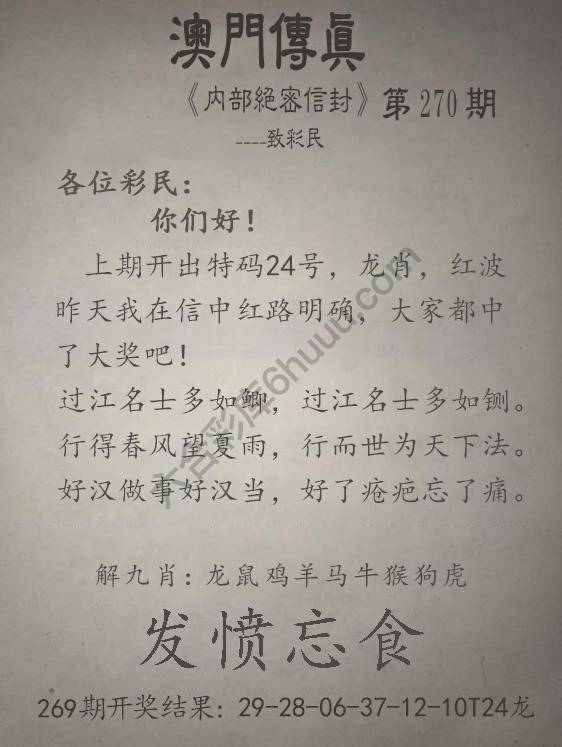 澳門傳真
《内部絕密信封》第270期
----致彩民
各位彩民：
你们好！
上期开出特码24号，龙肖，红波
昨天我在信中红路明确，大家都中
了大奖吧！
过江名士多如鲫，过江名士多如铡。
行得春风望夏雨，行而世为天下法。
好汉做事好汉当，好了疮疤忘了痛。
六合彩库6huuu.com
解九肖：龙鼠鸡羊马牛猴狗虎
发愤忘食
269期开奖结果：29-28-06-37-12-10T24龙